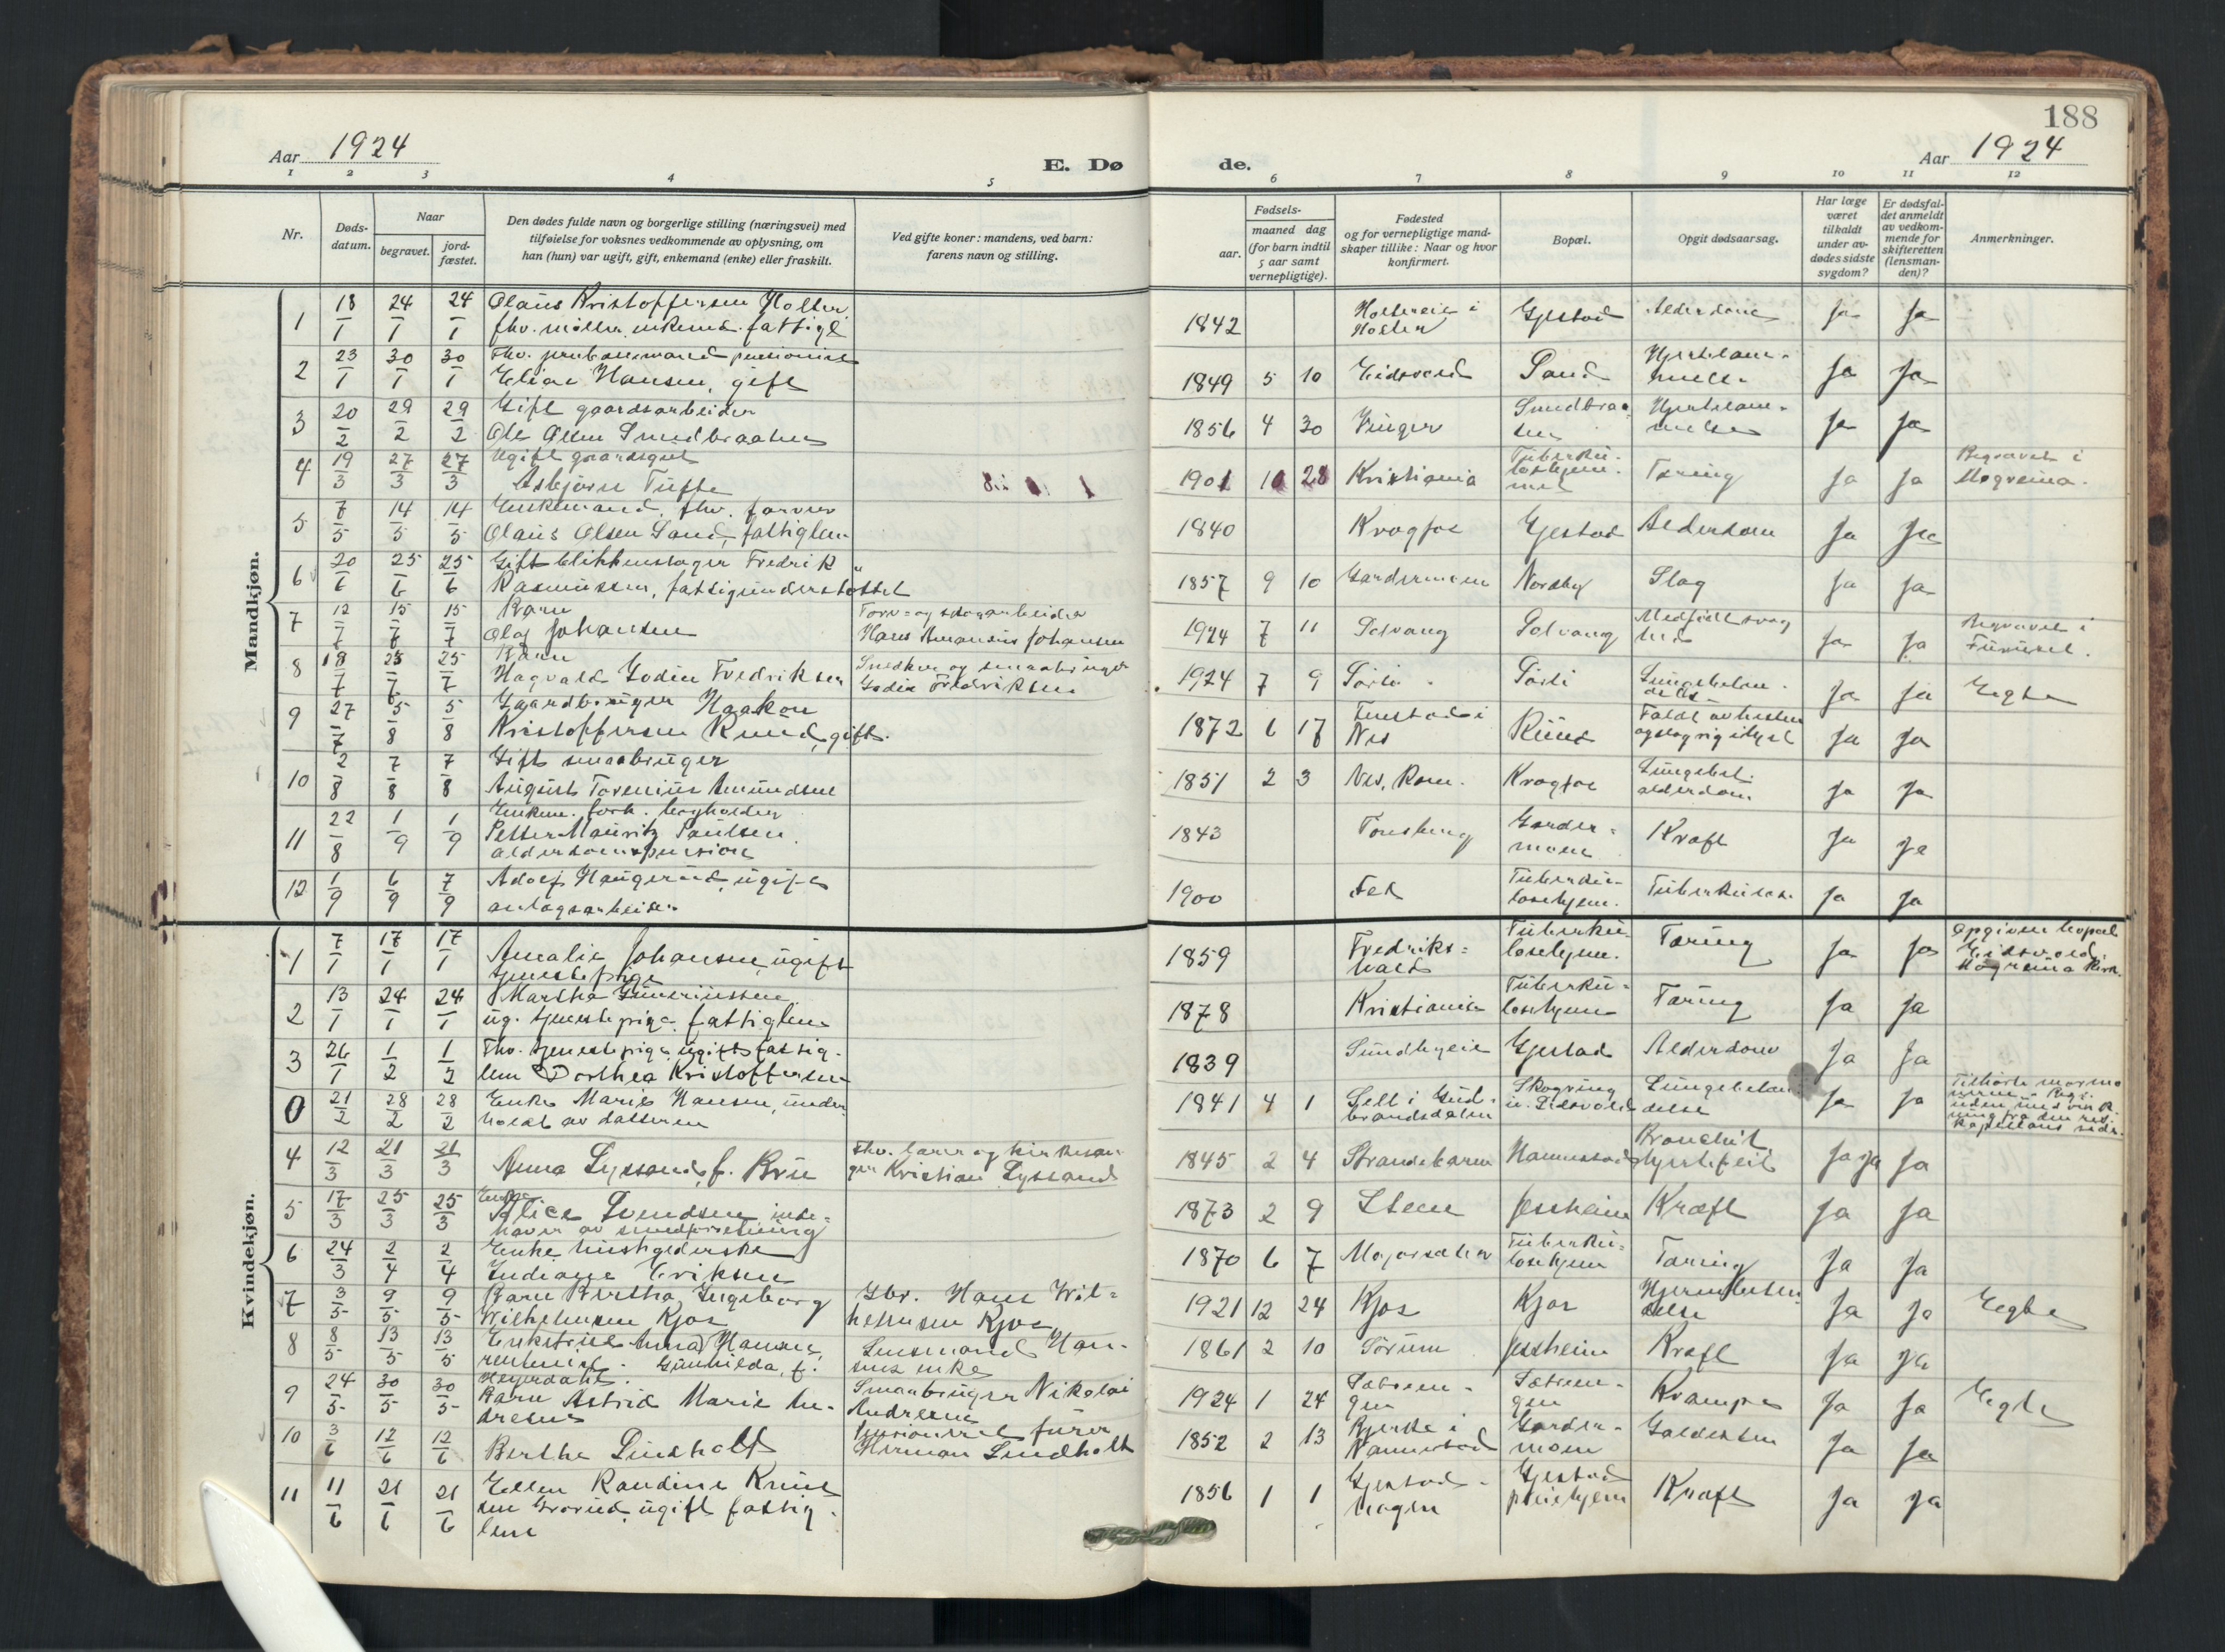 188
Aar 1924
E. Dø
de.
Aar 1924
1 2 3 4 5 6 7 8 9 10 11 12
Nr.
Døds-
datum.
Naar
begravet.
jord-
fæstet.
Den dødes fulde navn og borgerlige stilling (næringsvei) med
tilføielse for voksnes vedkommende av oplysning, om
han (hun) var ugift, gift, enkemand (enke) eller fraskilt.
Ved gifte koner: mandens, ved barn:
farens navn og stilling.
Fødsels-
aar.
maaned dag
(for barn indtil
5 aar samt
vernepligtige).
Fødested
og for vernepligtige mand-
skaper tillike: Naar og hvor
konfirmert.
Bopæl.
Opgit dødsaarsag.
Har læge
været
tilkaldt
under av-
dødes sidste
sygdom?
Er dødsfal-
det anmeldt
av vedkom-
mende for
skifteretten
(lensman-
den)?
Anmerkninger.
Mandkjøn.
1 18/1 24/1 24/1 Olaus Kristoffersen Holter
fhv. møller enkem. fattigl
1842 Holtereie i
Holter Gjestad Alderdom Ja Ja
2 23/1 30/1 30/1 Fhv. jernbanemand pensionist
Elias Hansen, gift
1849 5 10 Eidsvold Sand Hjertelam-
melse Ja Ja
3 20/2 29/2 29/2 Gift gaardsarbeider
Ole Olsen Smedbraaten
1856 4 30 Vinger Smedbraa-
ten Hjertelam-
melse Ja Ja
4 19/3 27/3 27/3 Ugift gaardsgut
Asbjørn Tufte
1901 10 28 Kristiania Tuberku-
losehjem-
met Tæring Ja Ja Begravet i
Mogreina.
5 7/5 14/5 14/5 Enkemand, fhv. farver
Olaus Olsen Sand, fattiglem
1840 Krogfos Gjestad Alderdom Ja Ja
6 20/6 25/6 25/6 Gift blikkenslager Fredrik
Rasmussen, fattigunderstøttet
1857 9 10 Gardermoen Nordby Slag Ja Ja
7 12/7 15/7 15/7 Barn
Olaf Johansen
Torv- og skogarbeider
Hans Amansius Johansen
1924 7 11 Solvang Solvang Medfødt svag
het Ja Ja Begravet i
Furuset.
8 18/7 25/7 25/7 Barn
Hagvald Godin Fredriksen
Snedker og smaabruger
Godin Fredriksen
1924 7 9 Sørli Sørli Lungebeten-
delse Ja Ja Egte
9 27/7 5/8 5/8 Gaardbruger Haakon
Kristoffersen Rund, gift.
1872 6 17 Fenstad i
Nes Rund Faldt av hesten
og slog sig ihjel Ja Ja
10 2/8 7/8 7/8 Gift smaabruger
August Torenius Amundsen
1851 2 3 Nes, Rom. Krogfos Lungebet.
alderdom Ja Ja
11 22/8 1/9 1/9 Enkem. forh. bogholder
Petter Mauritz Paulsen
alderdomspension
1843 Tønsberg Garder-
moen Kræft Ja Ja
12 1/9 6/9 7/9 Adolf Haugerud, ugift
anlægsarbeider
1900 Fet Tuberku-
losehjem. Tuberkulose Ja Ja
Kvindekjøn.
1 7/1 17/1 17/1 Amalie Johansen, ugift
tjenestepige
1859 Fredriks-
hald Tuberku-
losehjem. Tæring Ja Ja Opgiven bopæl
Eidsvold.
Mogreina kirk.
2 13/1 24/1 24/1 Martha Guneriussen
ug. tjenestepige fattiglem
1878 Kristiania Tuberku-
losehjem Tæring Ja Ja
3 26/1 1/2 1/2 Fhv. tjenestepige ugift fattig-
lem Dorthea Kristoffersen
1839 Sundbyeie Gjestad Alderdom Ja Ja
0 21/2 28/2 28/2 Enke Marie Hansen, under
holdt av datteren
1841 4 1 Sell i Gud-
brandsdalen Skogring
i Eidsvold Lungebeten-
delse Ja Ja Tilhørte mormo
nerne
4 12/3 21/3 21/3 Anna Lyssand, f. Bru
Fhv. lærer og kirkesan-
ger Kristian Lyssand
1845 2 4 Strandebarm Hammerstad Bronchit
hjertefeil Ja Ja Ja
5 17/3 25/3 25/3 Enke
Alice Svendsen inde-
haver av smedforretning
1873 2 9 Steen Jessheim Kræft Ja Ja
6 24/3 2/4 2/4 Enke husholderske
Indiane Eriksen
1870 6 7 Majorsæter Tuberku-
losehjem Tæring Ja Ja
7 3/5 9/5 9/5 Barn Bertha Ingeborg
Wilhelmsen Kjos
Gbr. Hans Wil-
helmsen Kjos
1921 12 24 Kjos Kjos Hjernebeten-
delse Ja Ja Egte
8 8/5 13/5 13/5 Enkefrue Anna Hansen
rentenist. Gunhilda, f.
Heyerdahl.
Lensmand Han-
sens enke
1861 2 10 Sørum Jessheim Kræft Ja Ja
9 24/5 30/5 30/5 Barn Astrid Marie An-
dresen
Smaabruger Nikolai
Andresen
1924 1 24 Sætren-
gen Sætren-
gen Krampe Ja Ja Egte
10 3/6 12/6 12/6 Berthe Lindholt
Pensionert furer
Herman Lindholt
1852 2 13 Bjerke i
Nannestad Garder-
moen Galdesten Ja Ja
11 11/6 21/6 21/6 Ellen Randine Knut
sen Grorud, ugift fattig-
lem
1856 1 1 Gjestad-
hagen Gjestad
pleiehjem Kræft Ja Ja